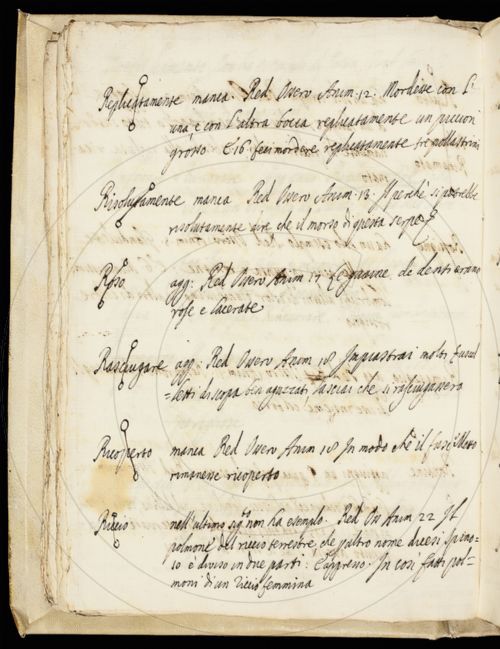 Replicatamente manca. Red. Osserv Anim. 12. Mordesse con l'
una, e con l'altra bocca replicatamente un piccion
grosso. E 16. feci mordere replicatamente tre pollastrini
Risolutamente manca Red. Osserv Anim. 13. Il perchè si potrebbe
risolutamente dire che il morso di questa serpe
Roso. agg: Red. Osserv Anim 17 Le guaine de denti erano
rose e lacerate
Rasciugare agg: Red. Osserv Anim 18 Impiastrai molti fuscel
=letti di scopa ben aguzzati lasciai che si rasciugassero
Ricoperto manca Red. Osserv Anim 18 In modo che il fuscelletto
rimanesse ricoperto
Riccio nell'ultimo sig.to non ha esempio. Red. Os Anim 22 Il
polmone del riccio terrestre, che p altro nome dicesi spino=
so è diviso in due parti: E appresso. In così fatti pol=
moni di un riccio femmina